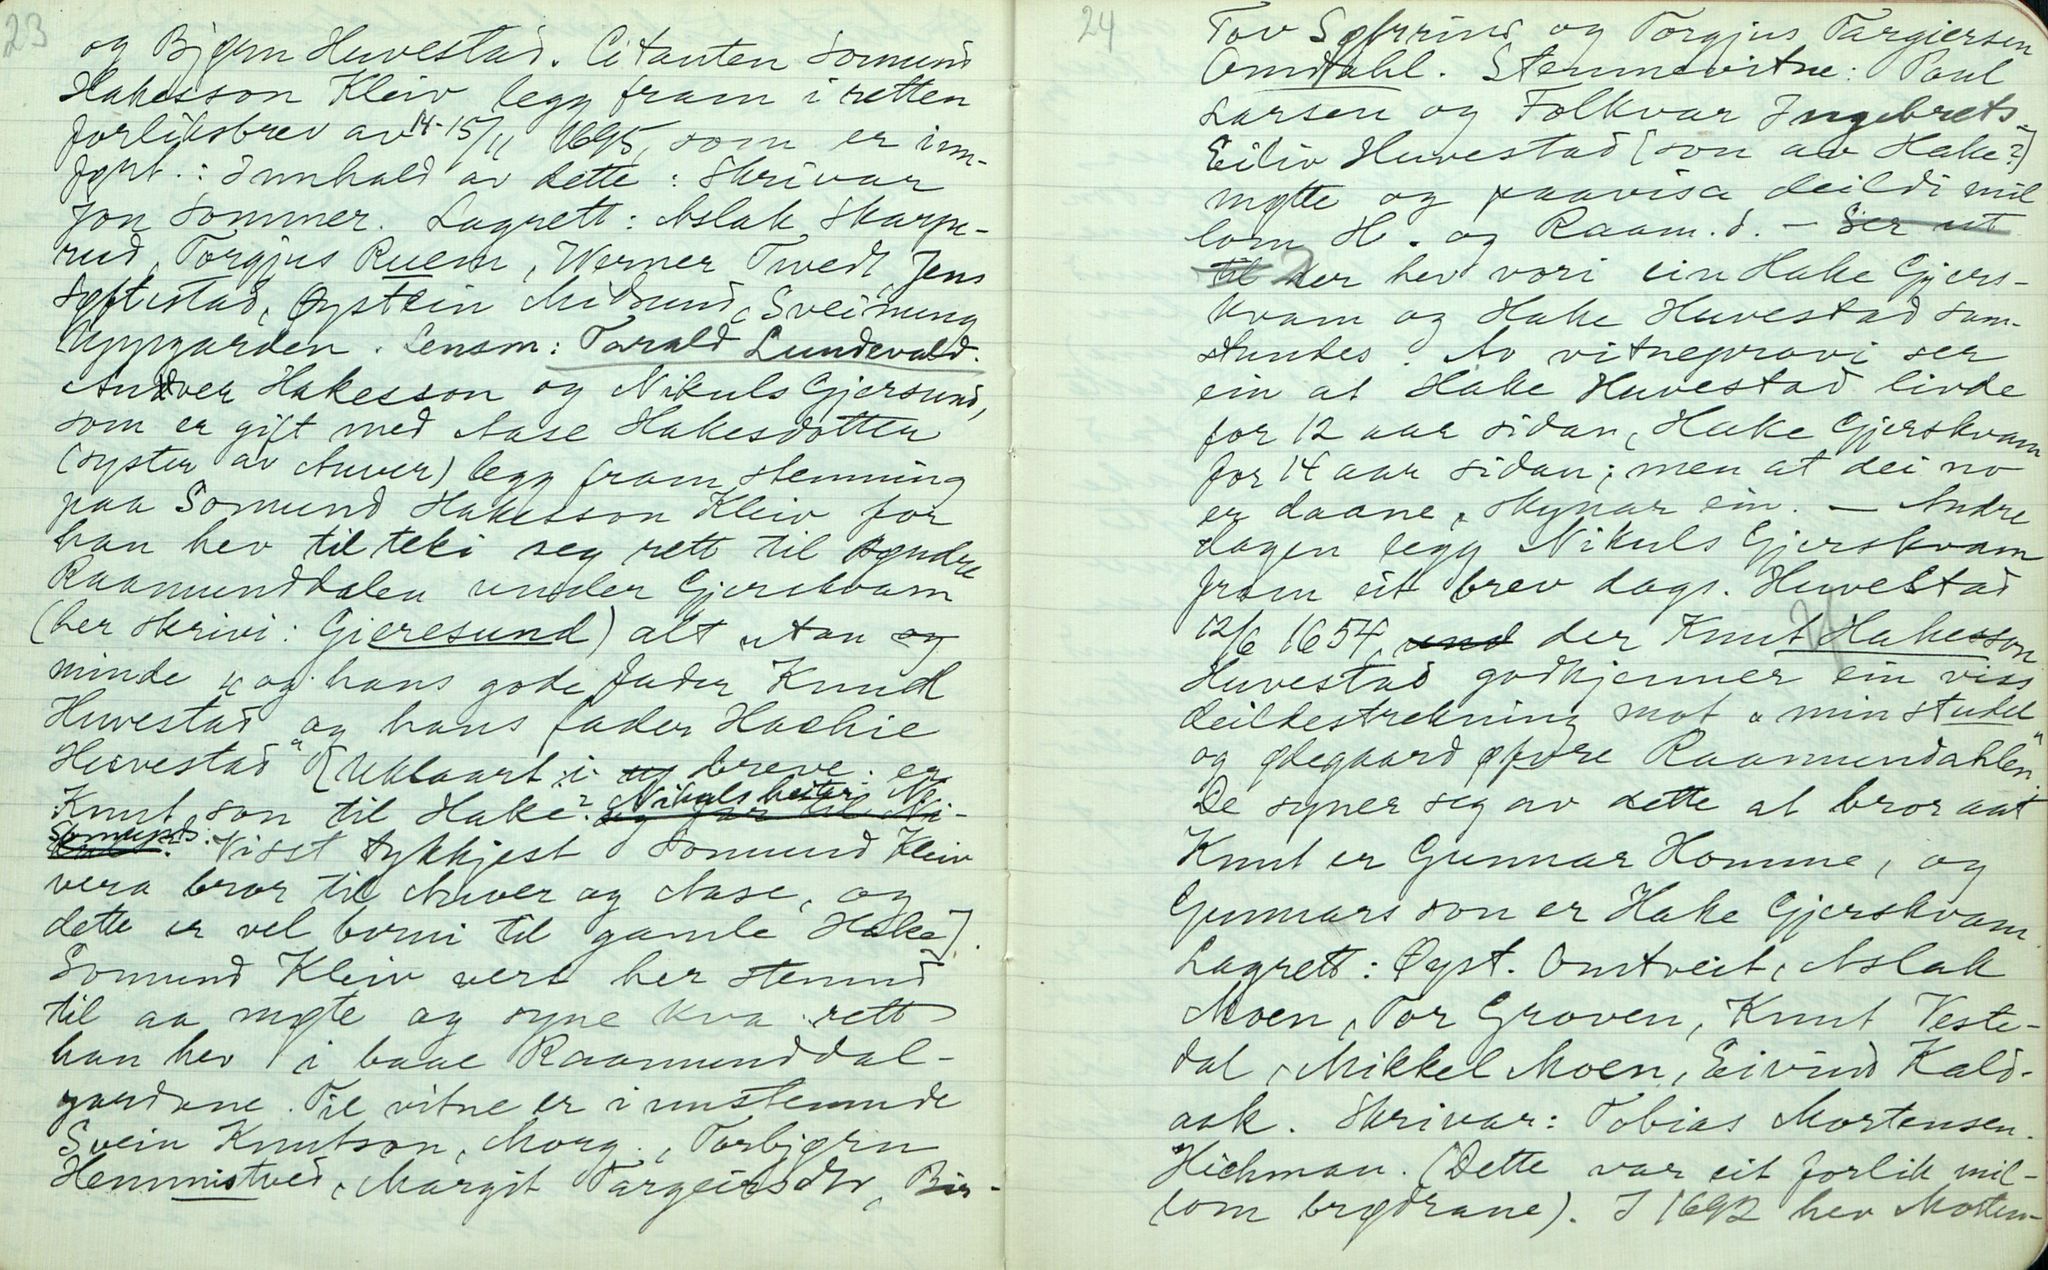 23
og Bjørn Huvestad. Citanten Somund
Hakesson Kleiv legg fram i retten
forliksbrev av 14-15/11 1695, som er inn-
ført.: Innhald av dette: Skrivar
Jon Sommer. Lagrett: Aslak Skarp-
rud, Torgjus Ruem, Werner Tvedt, Jens
Søftestad, Øystein Midsund, Sveinung
Uppgarden. Lensm: Tarald Lundevald.
Anver Hakesson og Nikuls Gjersund,
som er gift med Aase Hakesdotter
(syster av Anver) legg fram stemning
paa Somund Hakesson Kleiv for
han hev til teki seg rett til øyndre
Raamunddalen under Gjerskvam
(her skrivi: Gieresund) alt "utan og
minde" og hans gode fader Knud
Huvestad og hans fader Hachie
Huvestad" [Uklaart i og breve: er
Knut son til Hake? Nikuls heiter
Somunds: Visst tykkjest Somund Kleiv
vera bror til Anver og Aase, og
dette er vel borni til gamle Hake].
Somund Kleiv vert her stemnd
til aa møte og syne kva rett
han hev i baae Raamunddal-
gardane. Til vitne er innstemnde
Svein Knutson, Morg., Torbjørn
Hemmistveid, Margit Targeirsdtr, Bir-
24
Tov Søftrind og Torgjus Targiersen
Omdtahl. Stemnevitne: Paul
Larsen og Folkvar Ingebrets.
Eiliv Huvestad (son av Hake?)
møtte og paaviste deildi mil
lom H. og Raam.d. – Ser ut
til der hev vori ein Hake Gjers-
kvam og Hake Huvestad sam-
stundes. Av vitneprovi ser
ein at Hake Huvestad livde
for 12 aar sidan, Hake Gjerskvam
for 14 aar sidan; men at dei no
er daane, skynar ein. – Andre
dagen legg Nikuls Gjerskvam
fram eit brev dags. Huvestad
12/6 1654, und der Knut Hakesson
Huvestad godkjenner ein viss
deildestrekning mot "min studel
og ødegaard øfvre Raamundahlen"
De syner seg av dette at bror aat
Knut er Gunnar Homme, og
Gunnars son er Hake Gjerskvam.
Lagrett: Øyst. Omtveit, Aslak
Moen, Tor Groven, Knut Veste-
dal, Mikkel Moen, Eivind Kald-
aak. Skrivar: Tobias Mortensen
Hichman. (Dette var eit forlik mil-
lom brødrane). I 1692 hev Morten-